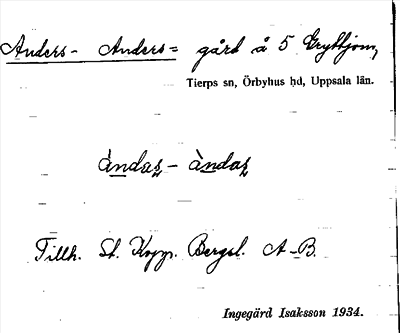 Anders- Anders= gård å 5 Gryttjom,
Tierps sn, Örbyhus hd, Uppsala län.
àndaʂ- àndaʂ
Tillh. St. Kopp. Bergsl. A-B.
Ingegärd Isaksson 1934.